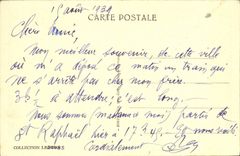 15 août 1934
CARTE POSTALE
Chère Amie,
Mon meilleur souvenir, de cette ville
où m'a déposé ce matin un train qui
ne s'arrête pas chez mon frère.
3h ½ à attendre, c'est long.
Nous sommes (madame et moi) partis de
St Raphaël hier à 17h 45.
Cordialement
COLLECTION